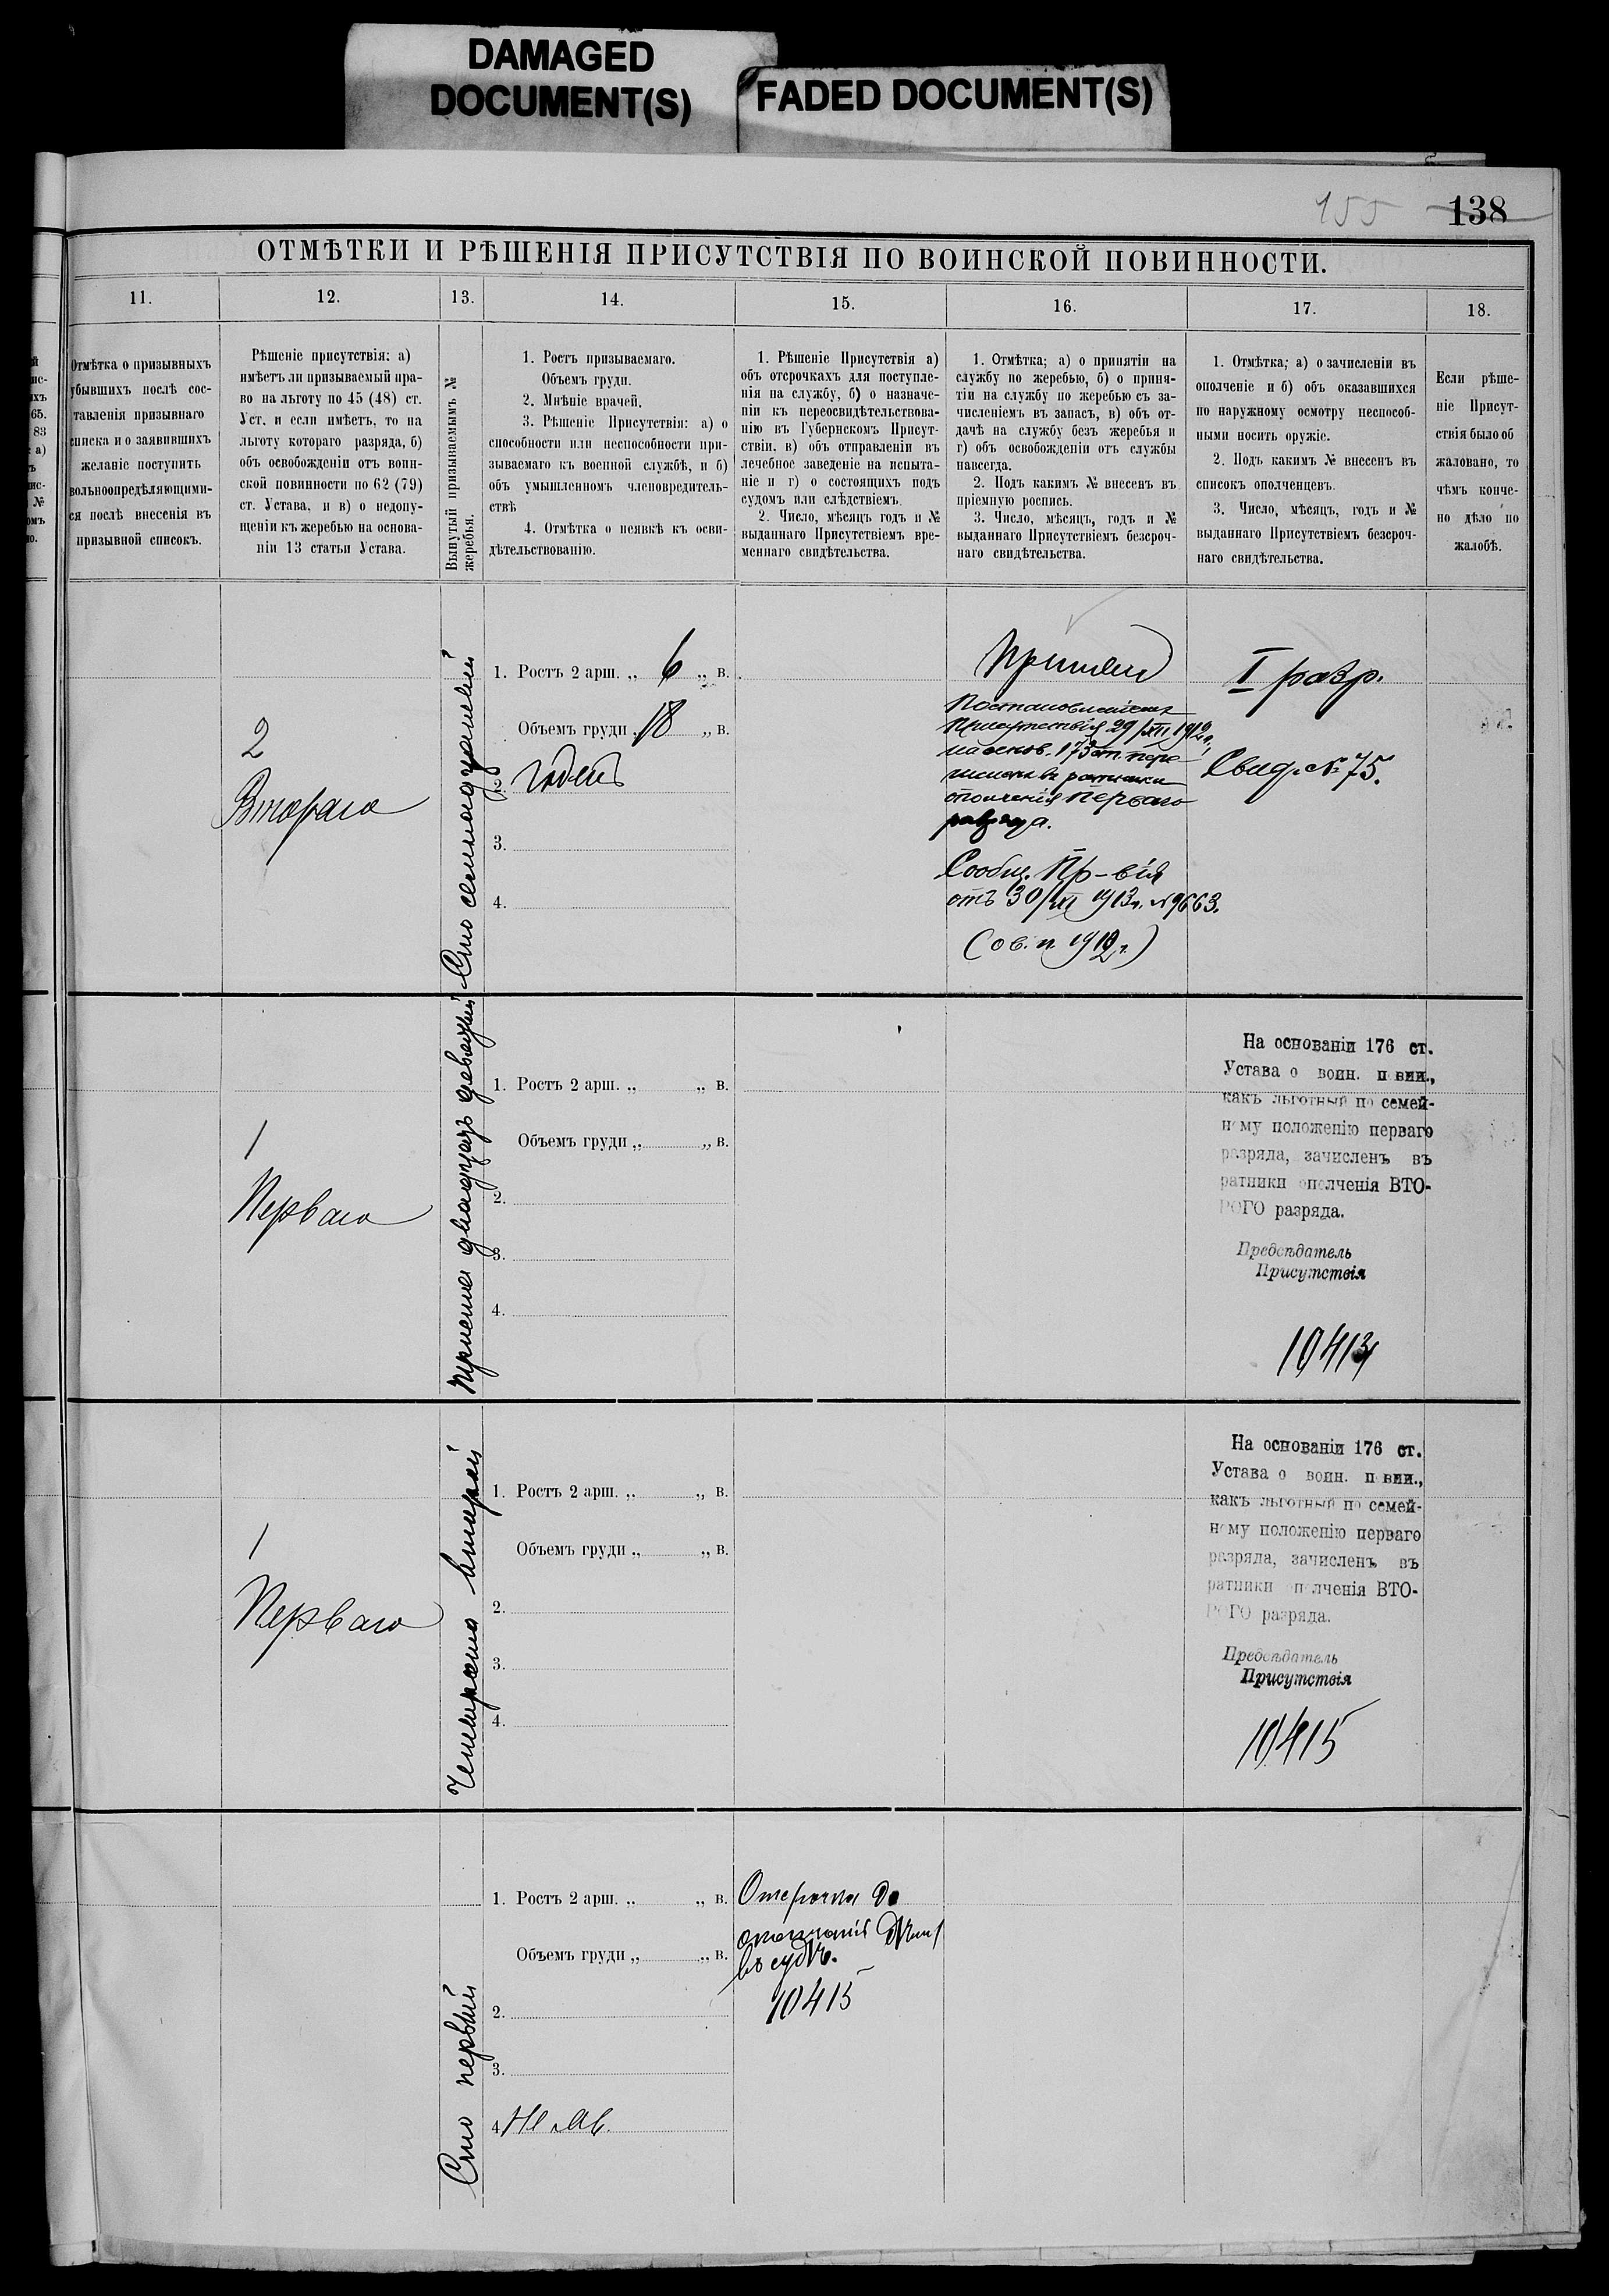 DAMAGED
DOCUMENT(S)
FADED DOCUMENT(S)
155
138
ОТМѢТКИ И РѢШЕНІЯ ПРИСУТСТВІЯ ПО ВОИНСКОЙ ПОВИННОСТИ.
11.
12.
13.
14.
15.
16.
17.
18.
Отмѣтка о призывныхъ
убывшихъ послѣ сос-
тавленія призывнаго
списка и о заявившихъ
желаніе поступить
вольноопредѣляющими-
ся послѣ внесенія въ
призывной списокъ.
Рѣшеніе присутствія: а)
имѣетъ ли призываемый пра-
во на льготу по 45 (48) ст.
Уст. и если имѣетъ, то на
льготу котораго разряда, б)
объ освобожденіи отъ воин-
ской повинности по 62 (79)
ст. Устава, и в) о недопу-
щеніи къ жеребью на основа-
ніи 13 статьи Устава.
Вынутый призываемымъ №
жеребья.
1. Ростъ призываемаго.
Объемъ груди.
2. Мнѣніе врачей.
3. Рѣшеніе Присутствія: а) о
способности или неспособности при-
зываемаго къ военной службѣ, и б)
объ умышленномъ членовредитель-
ствѣ
4. Отмѣтка о неявкѣ къ осви-
дѣтельствованію.
1. Рѣшеніе Присутствія а)
объ отсрочкахъ для поступле-
нія на службу, б) о назначе-
ніи къ переосвидѣтельствова-
нію въ Губернскомъ Присут-
ствіи, в) объ отправленіи въ
лечебное заведеніе на испыта-
ніе и г) о состоящихъ подъ
судомъ или слѣдствіемъ.
2. Число, мѣсяцъ годъ и №
выданнаго Присутствіемъ вре-
меннаго свидѣтельства.
1. Отмѣтка; а) о принятіи на
службу по жеребью, б) о приня-
тіи на службу по жеребью съ за-
численіемъ въ запасъ, в) объ от-
дачѣ на службу безъ жеребья и
г) объ освобожденіи отъ службы
навсегда.
2. Подъ какимъ № внесенъ въ
пріемную роспись.
3. Число, мѣсяцъ, годъ и №
выданнаго Присутствіемъ безсроч-
наго свидѣтельства.
1. Отмѣтка; а) о зачисленіи въ
ополченіе и б) объ оказавшихся
по наружному осмотру неспособ-
ными носить оружіе.
2. Подъ какимъ № внесенъ въ
списокъ ополченцевъ.
3. Число, мѣсяцъ, годъ и №
выданнаго Присутствіемъ безсроч-
наго свидѣтельства.
Если рѣше-
ніе Присут-
ствія было об
жаловано, то
чѣмъ конче-
но дѣло по
жалобѣ.
2
Втораго
Сто семнадцатый
1. Ростъ 2 арш. „ 6 „ в.
Объемъ груди 18 „ в.
2. Годенъ
3.
4.
Принятъ
Постановленіемъ
Присутствія 29/XII 1912 г.,
на основ. 175 ст. пере
ратники
ополченія перваго
разряда.
Сообщ. Пр-вія
отъ 30/XII 1913 г. № 9663.
1912 г.)
I разр.
Свид. № 75.
1
Перваго
Триста двадцать девятый
1. Ростъ 2 арш. „ „ в.
Объемъ груди „ „ в.
2.
3.
4.
На основаніи 176 ст.
Устава о воин. повин.,
какъ льготный по семей-
ному положенію перваго
разряда, зачисленъ въ
ратники ополченія ВТО-
РОГО разряда.
Предсѣдатель
Присутствія
1
Перваго
Четыреста второй
1. Ростъ 2 арш. „ „ в.
Объемъ груди „ „ в.
2.
3.
4.
На основаніи 176 ст.
Устава о воин. повин.,
какъ льготный по семей-
ному положенію перваго
разряда, зачисленъ въ
ратники ополченія ВТО-
РОГО разряда.
Предсѣдатель
Присутствія
10415
Сто первый
1. Ростъ 2 арш. „ „ в.
Объемъ груди „ „ в.
2.
3.
4. Не яв.
Отсрочка до
окончанія дѣла
въ судѣ.
10415